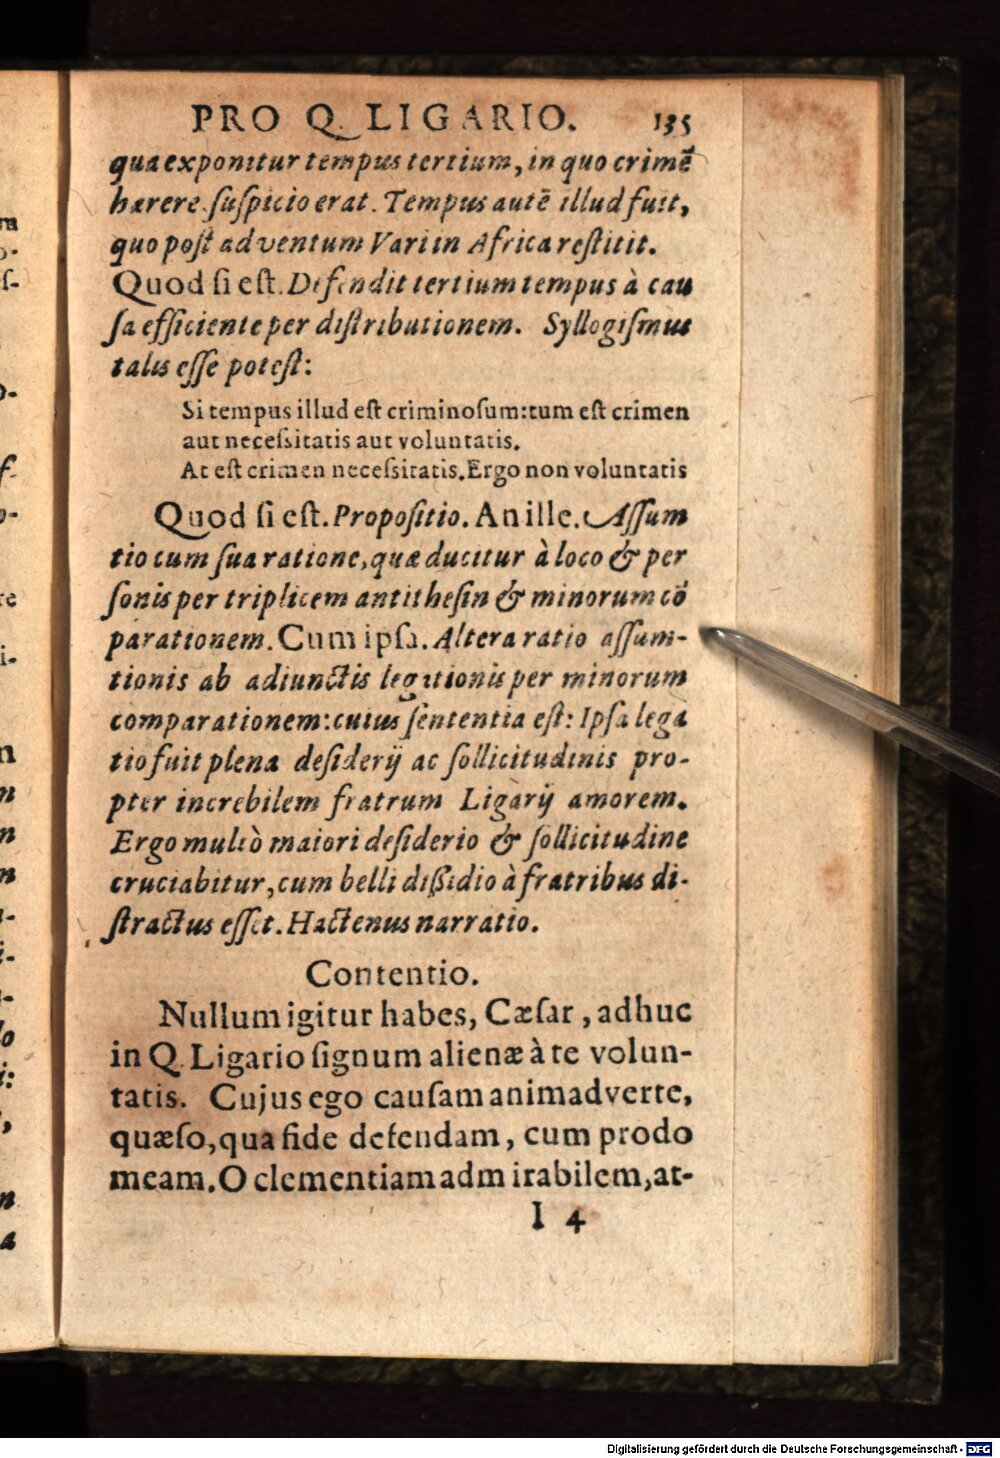 PRO Q. LIGARIO. 135
qua exponitur tempus tertium, in quo crimē
hærere suspicio erat. Tempus autē illud fuit,
quo post adventum Vari in Africa restitit.
Quod si est. Defendit tertium tempus à cau
sa efficiente per distributionem. Syllogismus
talis esse potest:
Si tempus illud est criminosum: tum est crimen
aut necessitatis aut voluntatis.
At est crimen necessitatis. Ergo non voluntatis
Quod si est. Propositio. An ille. Assum
tio cum sua ratione, quæ ducitur à loco & per
sonis per triplicem antithesin & minorum cō
parationem. Cum ipsa. Altera ratio assum-
tionis ab adiunctis legationis per minorum
comparationem: cuius sententia est: Ipsa lega
tio fuit plena desiderij ac sollicitudinis pro-
pter increbilem fratrum Ligarij amorem.
Ergo multò maiori desiderio & sollicitudine
cruciabitur, cum belli dißidio à fratribus di-
stractus esset. Hactenus narratio.
Contentio.
Nullum igitur habes, Cæsar, adhuc
in Q. Ligario signum alienæ à te volun-
tatis. Cujus ego causam animadverte,
quæso, qua fide defendam, cum prodo
meam. O clementiam adm irabilem, at-
I 4
Digitalisierung gefördert durch die Deutsche Forschungsgemeinschaft - DFG